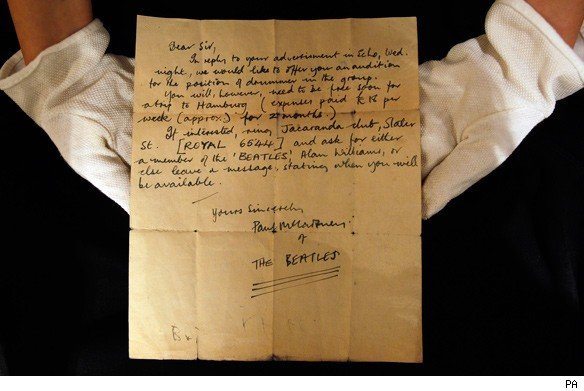 Dear Sir,
In reply to your advertisment in Echo, Wed.
night, we would like to offer you an audition
for the position of drummer in the group.
You will, however, need to be free soon for
a trip to Hamburg (expenses paid £18 per
week (approx.) for 2 months.)
If interested, ring Jacaranda club, Slater
St. [ROYAL 6544] and ask for either
a member of the 'BEATLES', Alan Williams, or
else leave a message, stating when you will
be available.
Yours Sincerely
Paul McCartney
of
THE BEATLES
PA